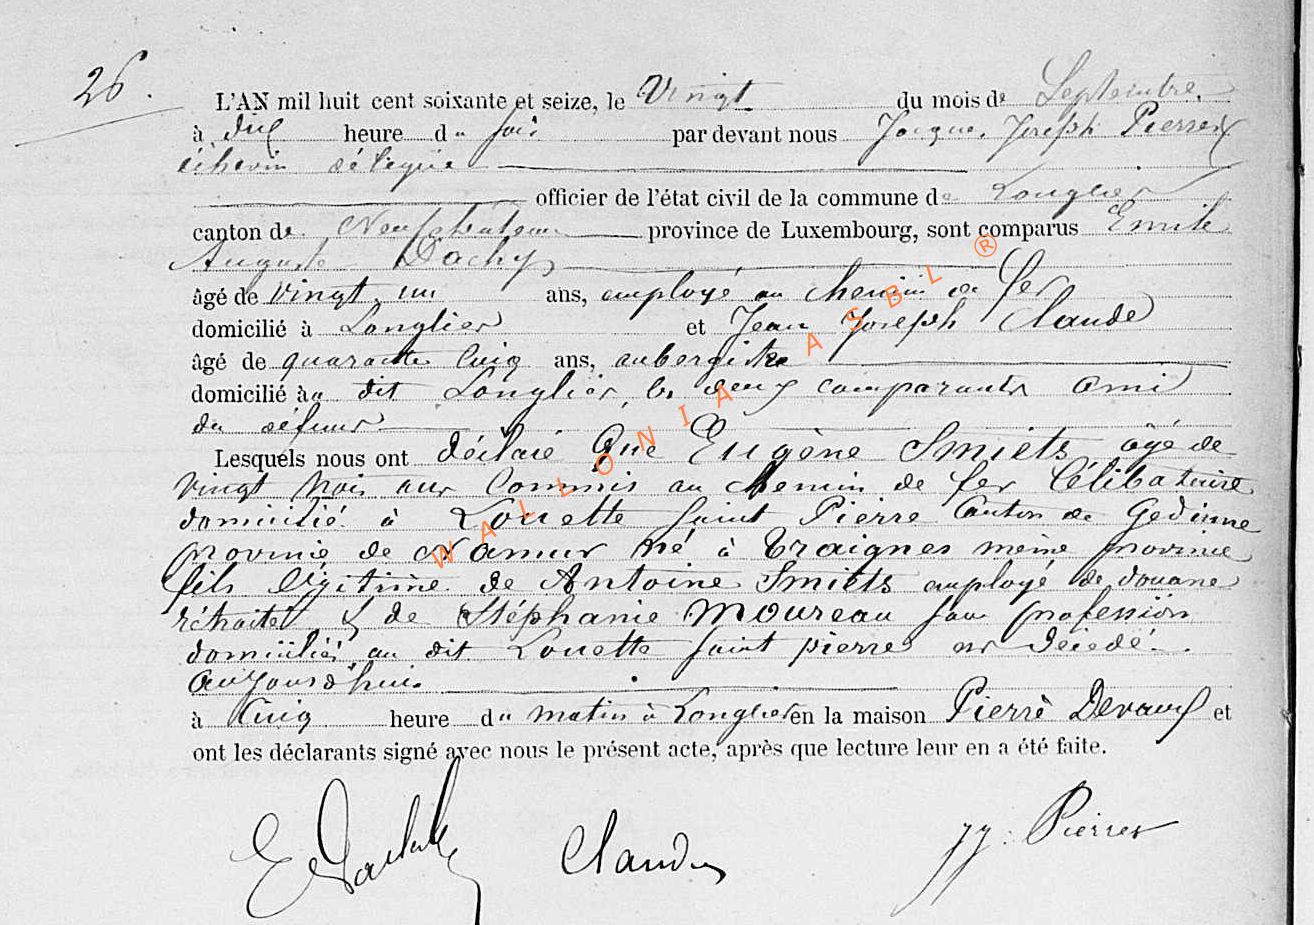 26.
L'AN mil huit cent soixante et seize, le Vingt du mois de Septembre
à dix heure du soir par devant nous Jacques Joseph Pierret
échevin délégué
officier de l'état civil de la commune de Longlier
canton de Neufchateau province de Luxembourg, sont comparus Emile
Auguste Dachy
âgé de vingt un ans, employé au chemin de fer
domicilié à Longlier et Jean Joseph Claude
âgé de quarante cinq ans, aubergiste
domicilié au dit Longlier, les deux comparants ami
du défunt
Lesquels nous ont déclaré Que Eugène Smiets âgé de
vingt trois ans Commis au chemin de fer Célibataire
domicilié à Louette Saint Pierre Canton de Gedinne
province de Namur né à Traignes même province
fils légitime de Antoine Smiets employé de douane
rétraité & de Stéphanie Moureau sans profession
domiciliés au dit Louette Saint pierre est décédé
aujourd'hui
à Cinq heure du matin à Longlier en la maison Pierre Devaux et
ont les déclarants signé avec nous le présent acte, après que lecture leur en a été faite.
E Dachy Claude JJ. Pierret
WALLONIA ASBL ®